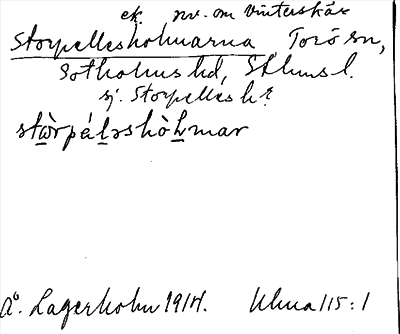 ek. nv. om Vinterskär
Storpellesholmarna, Torö sn,
Sotholms hd, Sthms l.
sj. Storpellesh:e
stòrpáləshòlmar
A. Lagerholm 1914. Uhna 115:1